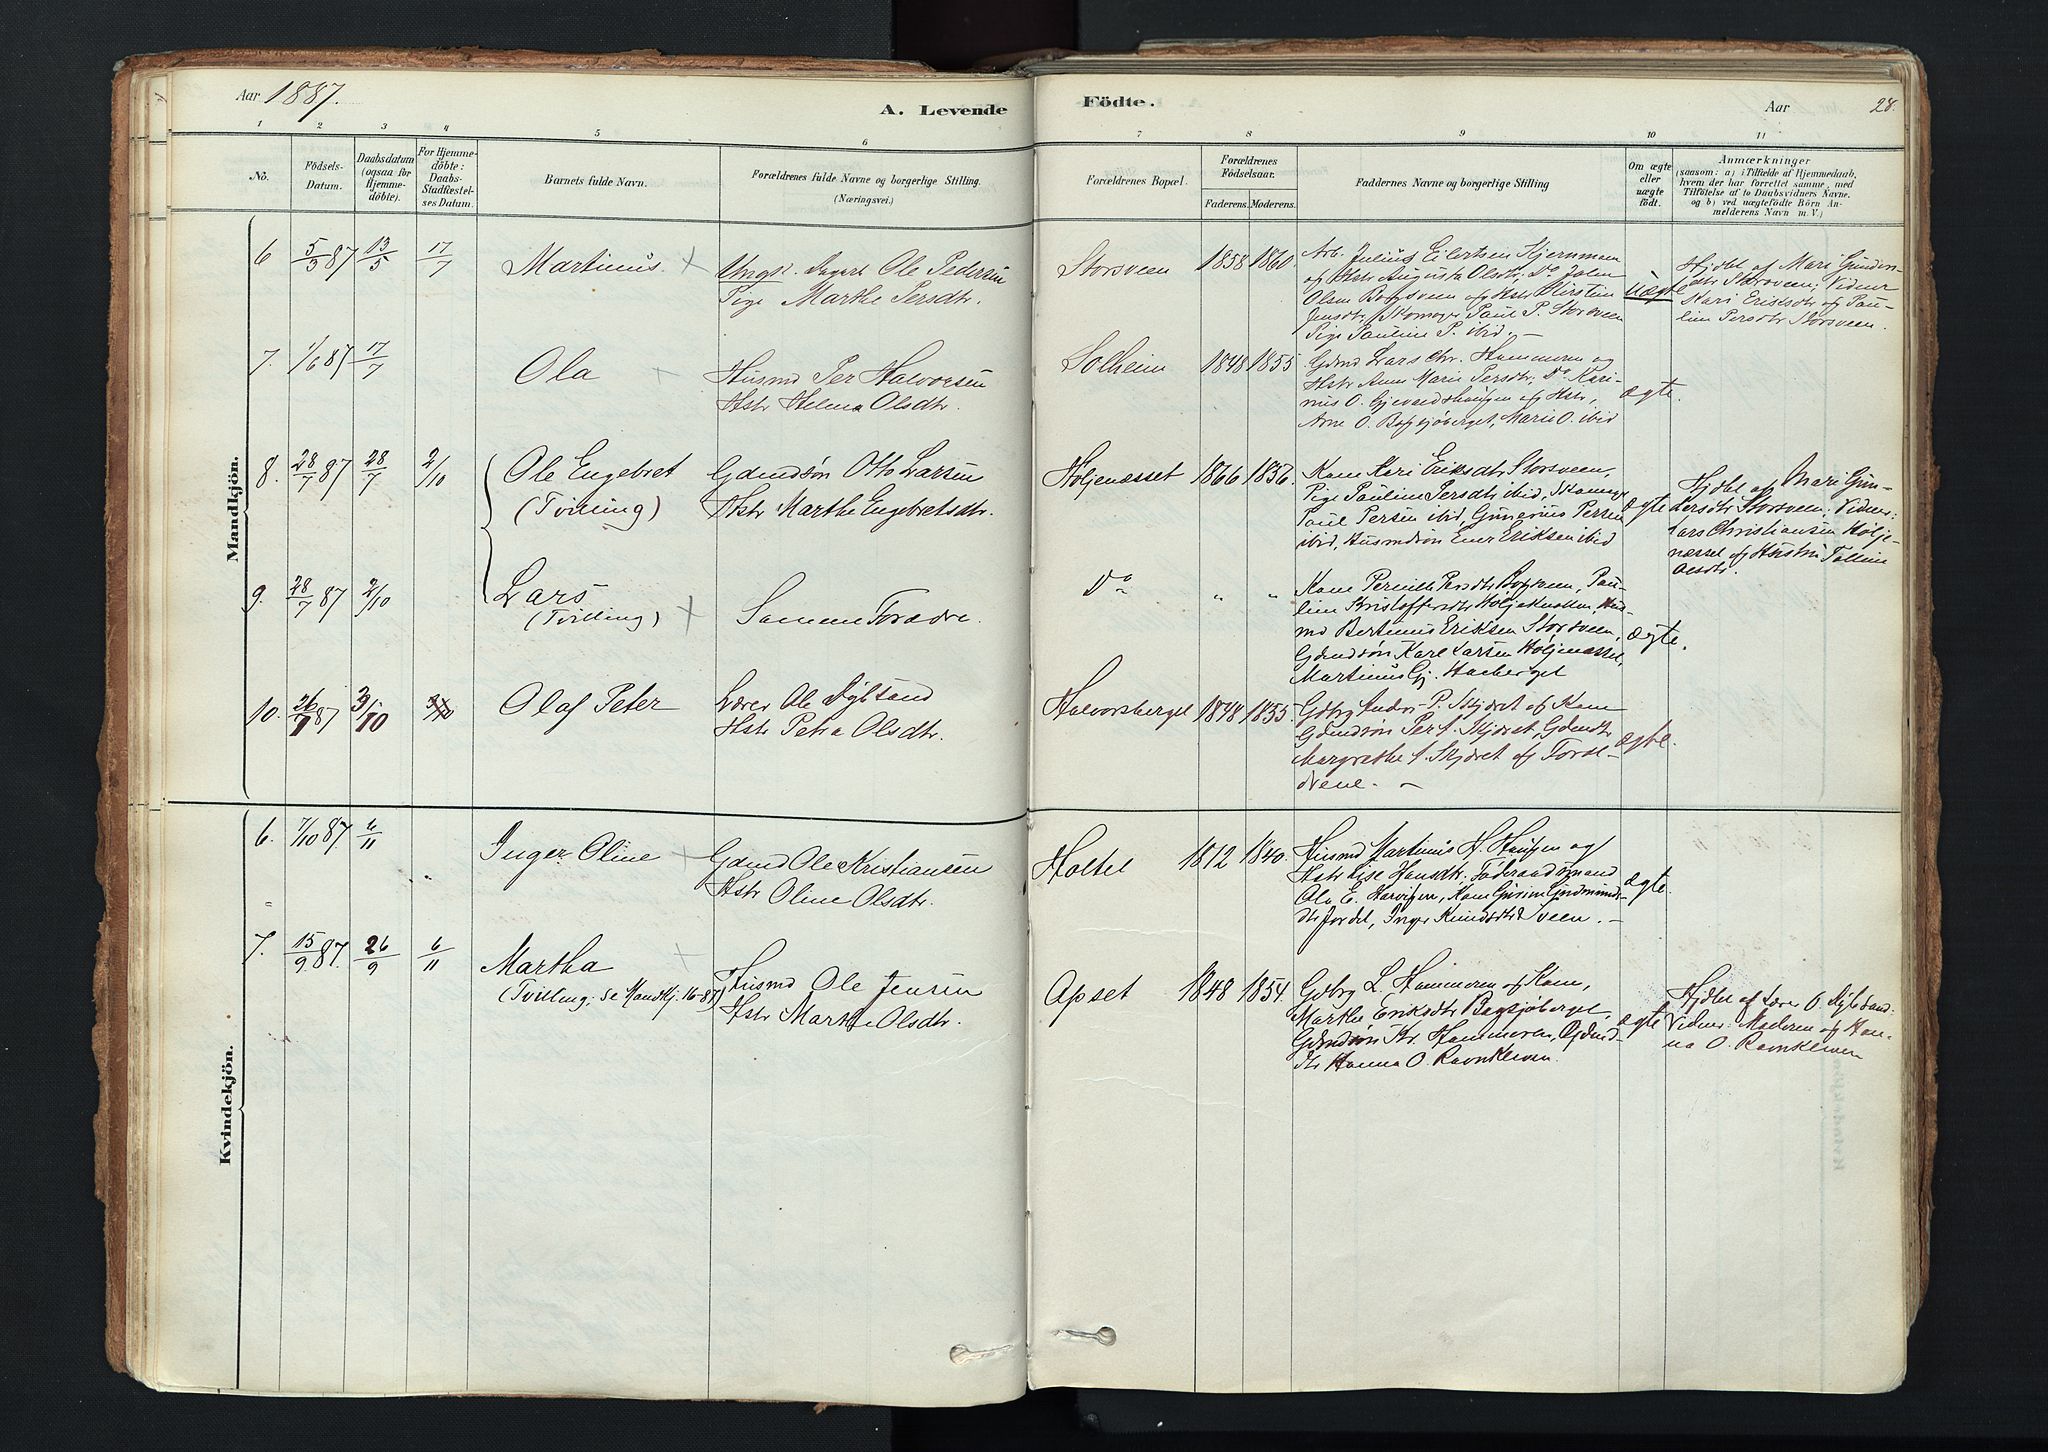 Aar 1887.
A. Levende
Födte.
Aar
28.
1 2 3 4 5 6 7 8 9 10 11
No.
Födsels-
Datum.
Daabsdatum
(ogsaa for
Hjemme-
döbte).
For Hjemme-
döbte:
Daabs-
Stadfæstel-
ses Datum.
Barnets fulde Navn.
Forældrenes fulde Navne og borgerlige Stilling.
(Næringsvei.)
Forældrenes Bopæl.
Forældrenes
Födselsaar.
Faderens. Moderens.
Faddernes Navne og borgerlige Stilling
Om ægte
eller
uægte
födt.
Anmærkninger
(saasom: a) i Tilfælde af Hjemmedaab,
hvem der har forrettet samme, med
Tilföielse af to Daabsvidners Navne,
og b) ved uægtefödte Börn An-
melderens Navn m. V.)
Mandkjön.
6 5/3 87 13/5 17/7
Martinus
Ungk. Ole Pedersen
Pige Marthe Persdtr.
Storsveen
1858 1860
Arb. Julius Eilertsen Kjernmoen
og Hstr Augusta Olsdtr, Do Johan
Olsen Bogsveen og Hstr Kirstine
Jensdtr, Skomager Paul P. Storsveen
Pige Pauline P. ibid. —
Uægte
Hjdbt af Mari Gunder-
dtr Storsveen; Vidner
Kari Eriksdtr og Pau-
line Persdtr Storsveen.
7. 1/6 87 17/7
Ola
Husmd Per Halvorsen
Hstr Helena Olsdtr.
Solheim
1848 1855
Gdmd Lars Chr. Hammeren og
Hstr Anne Marie Persdtr; Do Kari-
nus O. og Hstr,
Arne O. Bogsjöberget, Marie O. ibid
ægte.
8. 28/7 87 28/7 2/10
Ole Engebret
(Tvilling)
Gdmdsön Otto Larsen
Hstr Marthe Engebretsdtr.
Höljenæsset
1866 1856.
Kone Kari Eriksdtr Storsveen,
Pige Pauline Persdtr ibid, Skomag.
Paul Persen ibid, Gunerius Persen
ibid, Husmdsön Ener Eriksen ibid
ægte
Hjdbt af Mari Gun-
dersdtr Storsveen; Vidner:
Lars Christiansen Hölje-
næsset og Hustru Talline
Olsdtr.
9. 28/7 87 2/10
Lars
(Tvilling)
Samme Forældre.
Do
" "
Kone Pernille Persdtr Bogsveen, Pau-
line Kristoffersdtr Höljeknatten, Hus-
md Bertinus Eriksen Storsveen,
Gdmdsön Karl Larsen Höljenæsset,
Martinus Gj. Haaberget
ægte.
10. 26/7 87 3/10 3/10
Olaf Peter
Lærer Ole Dybsand
Hstr Petra Olsdtr.
Halvorsberget
1848 1855.
Gdbrg Andor P. Skjæret og Kone
Gdmdsön Per A. Skjæret, Gdmdtr
Margrethe A. Skjæret og Foræl-
drene. —
ægte.
Kvindekjön.
6. 7/10 87 6/11
Inger Oline
Gdmd Ole Kristiansen
Hstr Oline Olsdtr.
Holtet
1812 1840.
Husmd Martinus H. Haugen og
Hstr Lise Hansdtr. Föderaadsmand
Ole E. Kone Gurine Gudmunds-
dtr Jordet, Inger Knudsdtr Sveen. —
ægte.
7. 15/9 87. 26/9 6/11
Martha
(Tvilling; se Mandkj. 16-87)
Husmd Ole Jensen
Hstr Marthe Olsdtr.
Apset
1848 1854.
Gdbrg L. Hammeren og Kone,
Marthe Eriksdtr Bogsjöberget,
Gdmdsön Kr. Hammeren, Gdmd-
dtr Hanna O. Ravnkleven.
ægte
Hjdbt af Lærer O. Dybsand:
Vidner: Moderen og Han-
na O. Ravnkleven